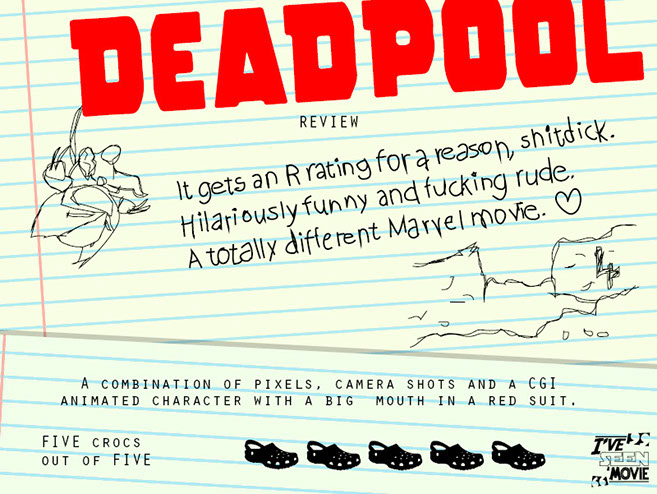 DEADPOOL
REVIEW
It gets an R rating for a reason, shitdick.
Hilariously funny and fucking rude.
A totally different Marvel movie. ♡
4
A COMBINATION OF PIXELS, CAMERA SHOTS AND A CGI
ANIMATED CHARACTER WITH A BIG MOUTH IN A RED SUIT.
FIVE CROCS
OUT OF FIVE
I'VE
SEEN
MOVIE